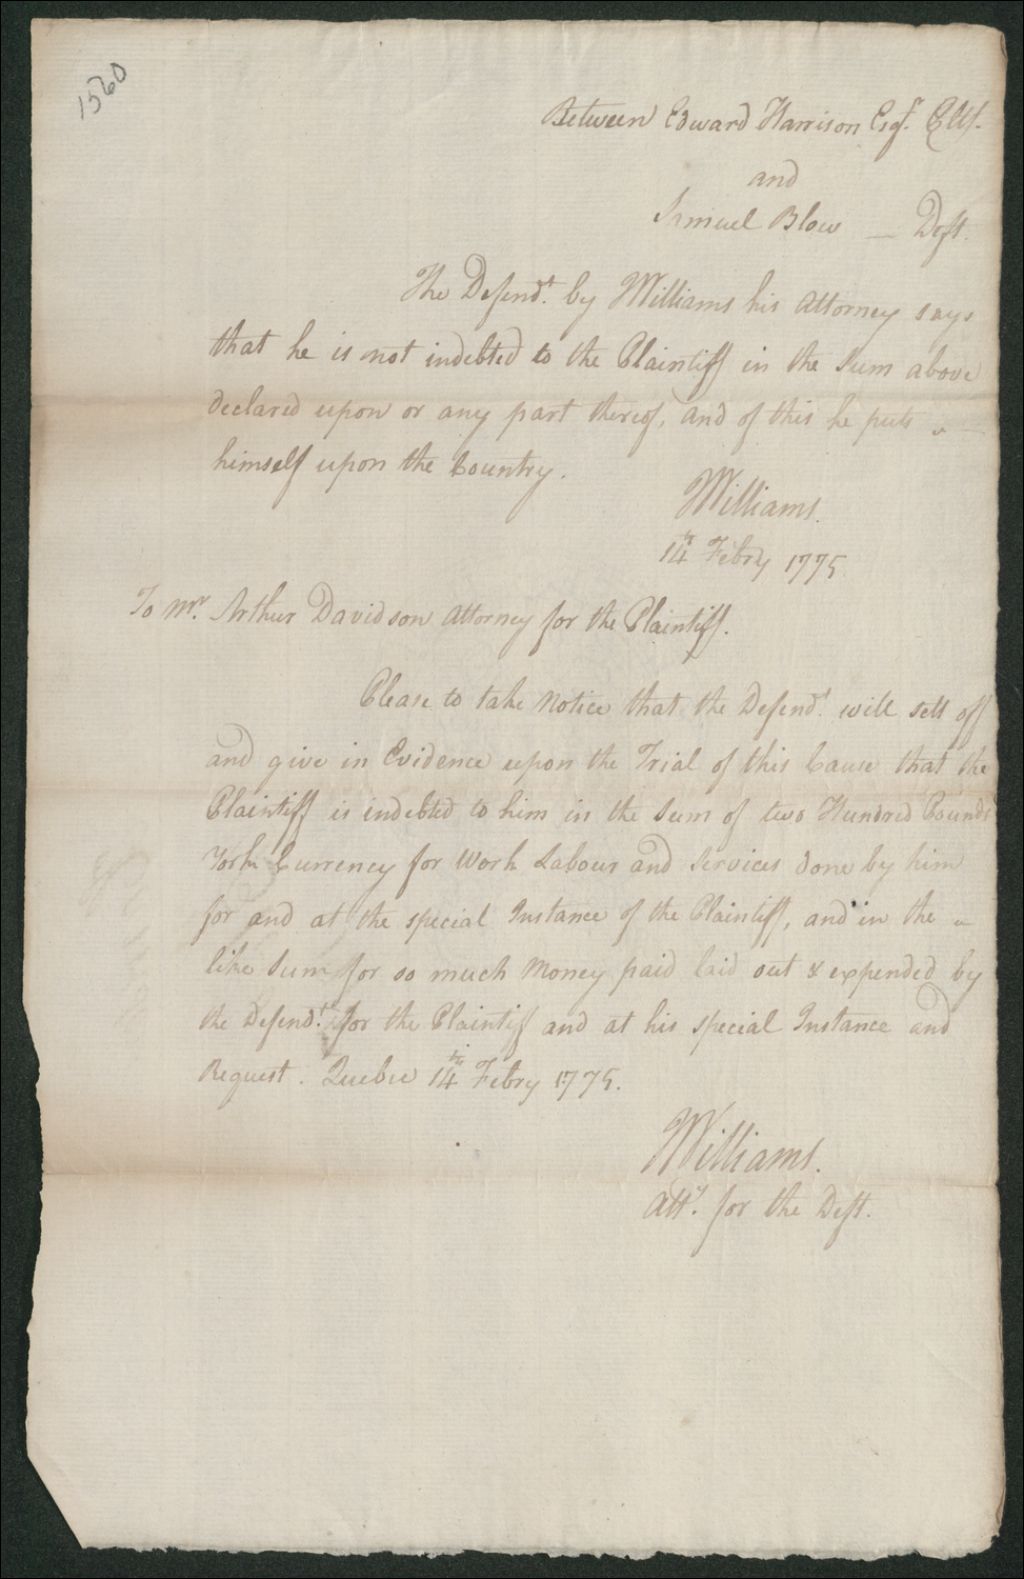 1560
Between Edward Harrison Esqr. Pltf.
and
Samuel Blow — Deft.
The Defendt. by Williams his Attorney says
that he is not indebted to the Plaintiff in the Sum above
declared upon or any part thereof, and of this he puts
himself upon the Country.
Williams.
14th Febry 1775
To Mr. Arthur Davidson Attorney for the Plaintiff.
Please to take Notice that the Defendt. will sett off
and give in Evidence upon the Trial of this Cause that the
Plaintiff is indebted to him in the Sum of two Hundred Pounds
York Currency for Work Labour and Services done by him
for and at the special Instance of the Plaintiff, and in the
like Sum for so much Money paid laid out & expended by
the Defendt. for the Plaintiff and at his special Instance and
Request. Quebec 14th Febry 1775.
Williams.
Atty. for the Deft.